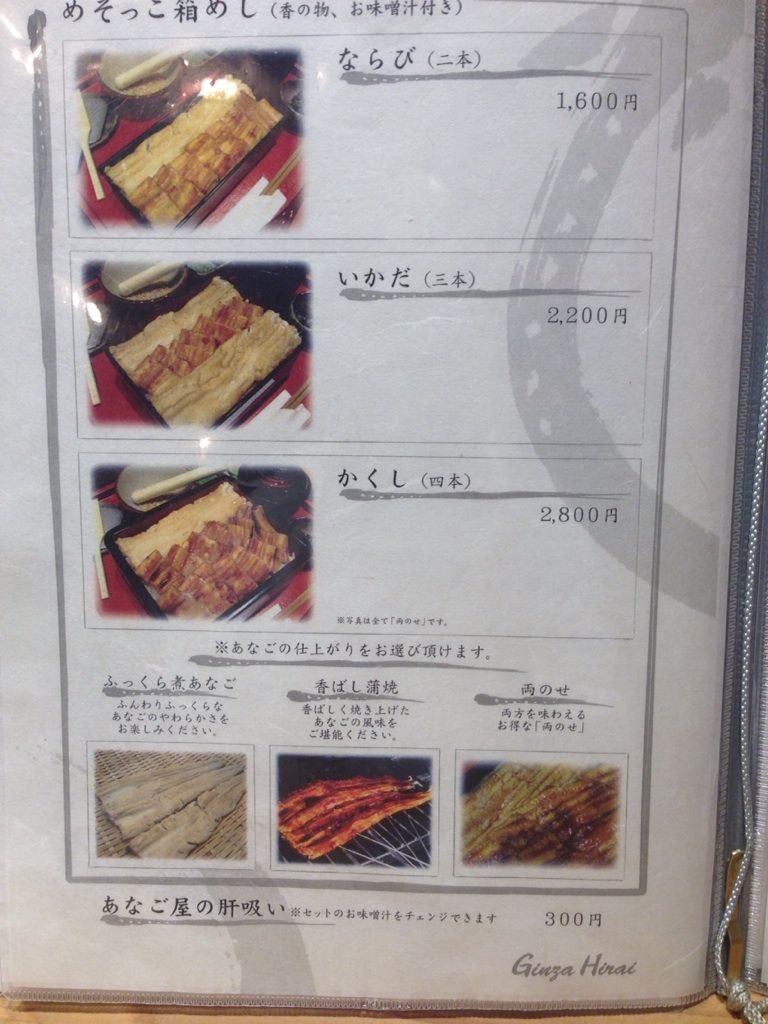 めそっこ箱めし（香の物、お味噌汁付き）
ならび（二本）
1,600円
いかだ（三本）
2,200円
かくし（四本）
2,800円
※写真は全て「両のせ」です。
※あなごの仕上がりをお選び頂けます。
ふっくら煮あなご
ふんわりふっくらな
あなごのやわらかさを
お楽しみください。
香ばし蒲焼
香ばしく焼き上げた
あなごの風味を
ご堪能ください。
両のせ
両方を味わえる
お得な「両のせ」
あなご屋の肝吸い ※セットのお味噌汁をチェンジできます 300円
Ginza Hirai